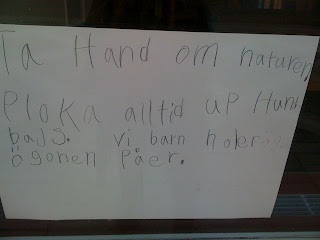 Ta Hand om naturen,
Ploka alltid up Hund
bajs. vi barn håler
ögonen påer.